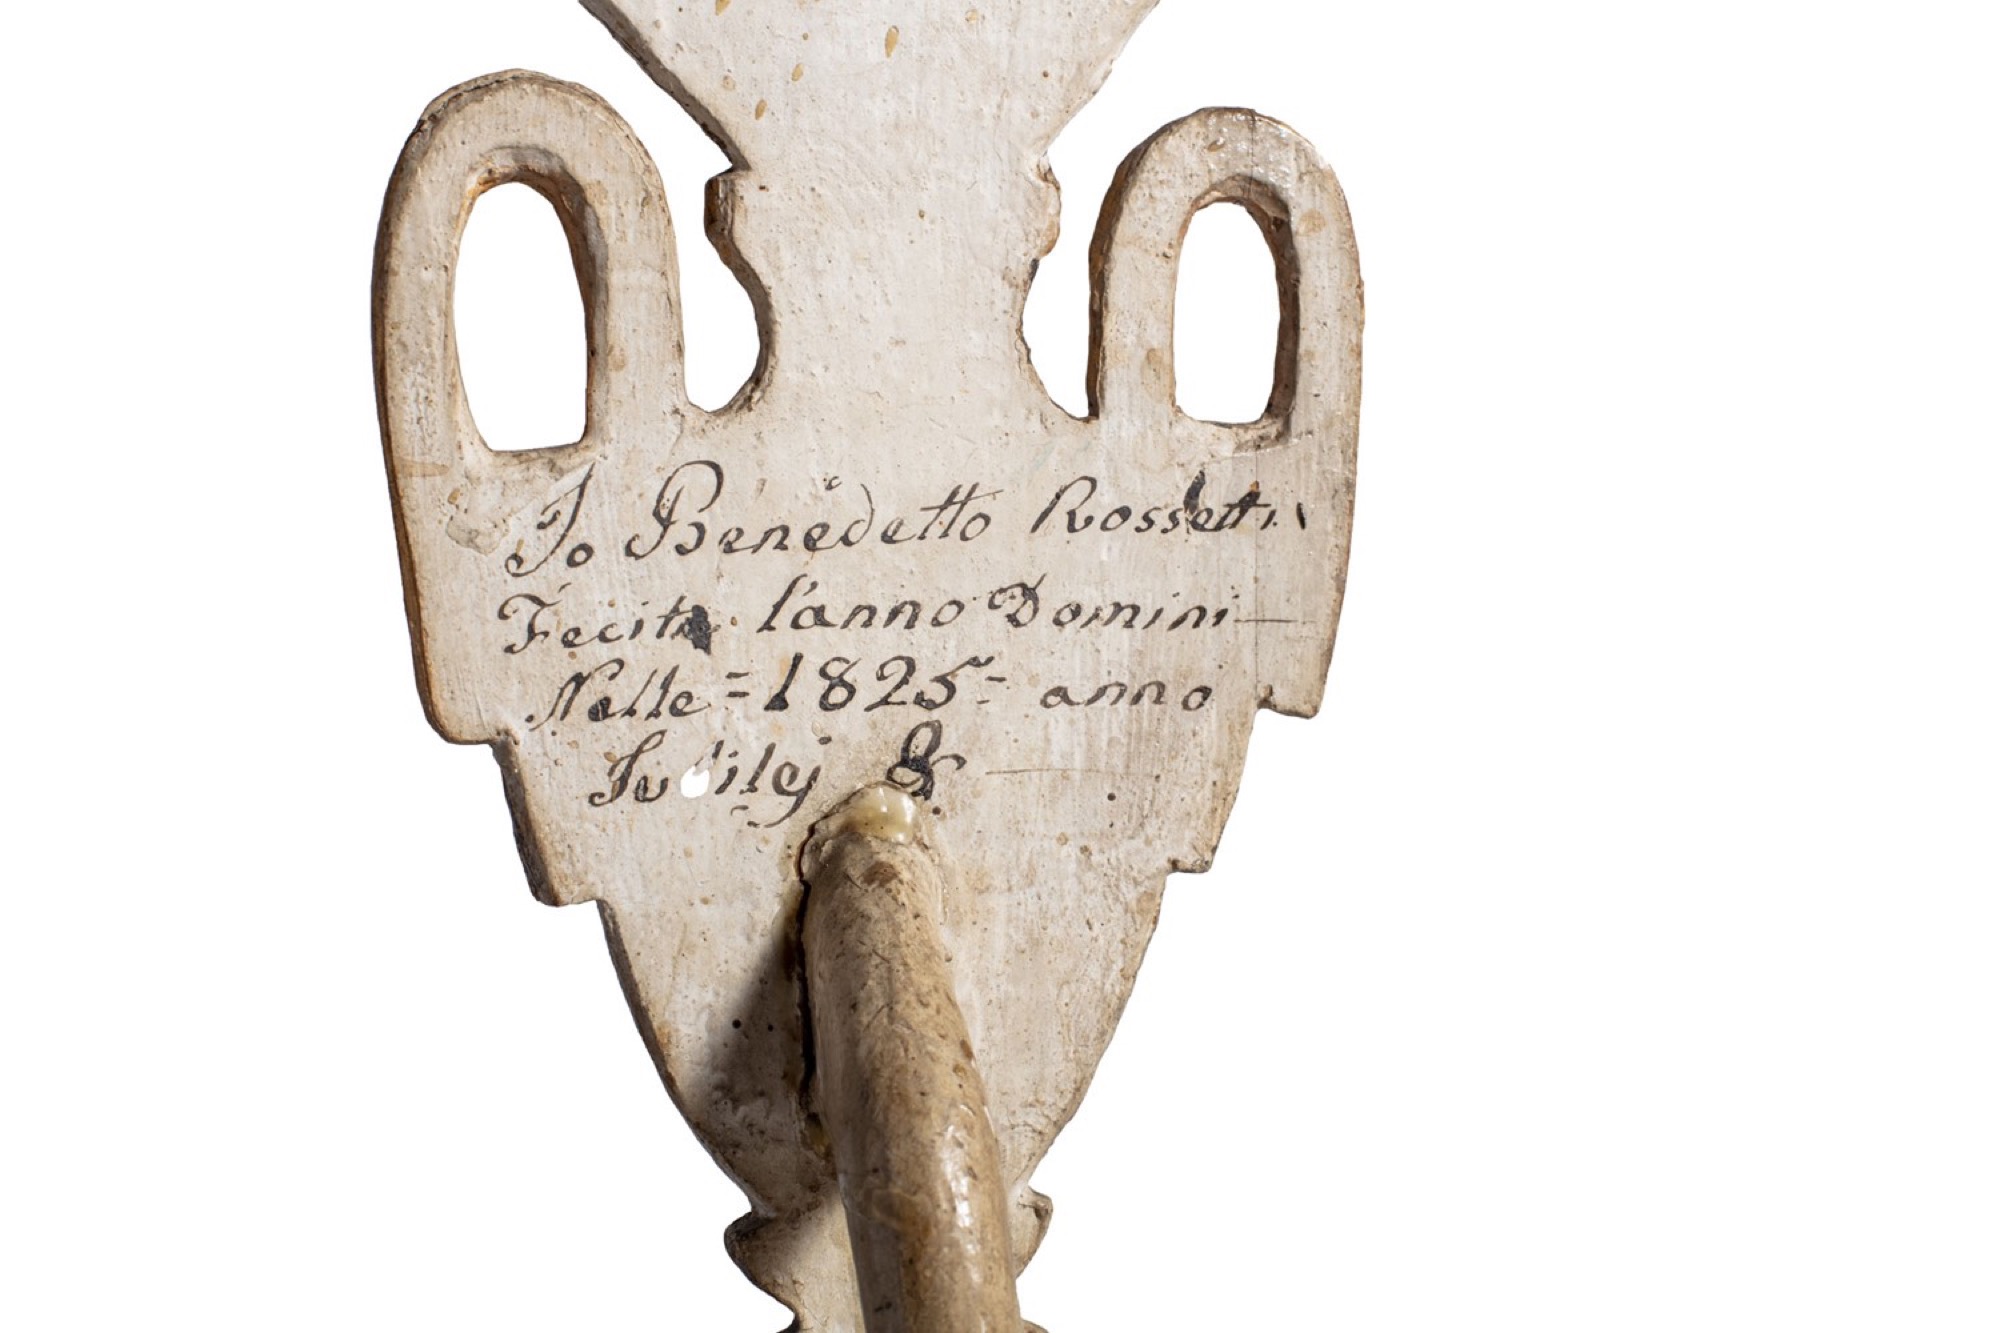 Io Benedetto Rossetti
Fecit l'anno Domini
Nelle = 1825 = anno
Iubilej &